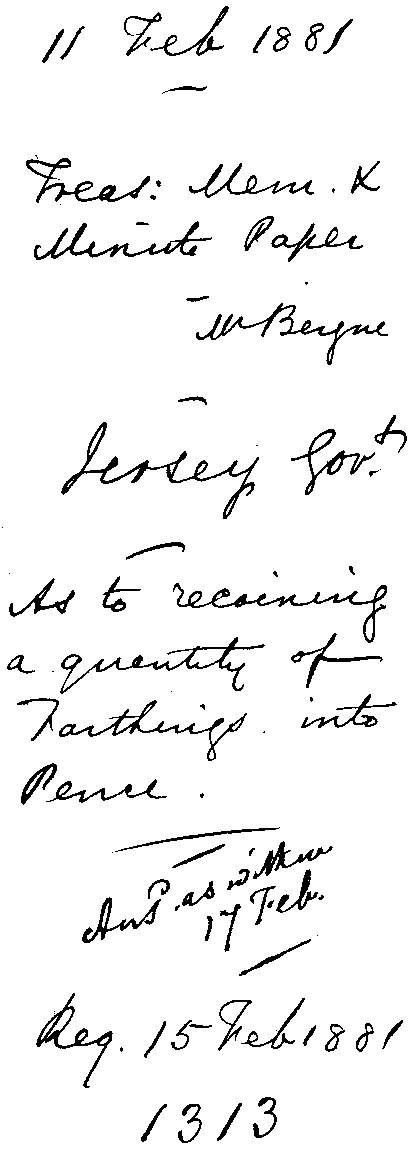 11 Feb 1881
Treas: Mem. &
Minute Paper
Mr Bergne
Jersey Govt.
As to recoining
a quantity of
Farthings into
Pence.
Ansd. as within
17 Feb.
Reg. 15 Feb 1881
1313